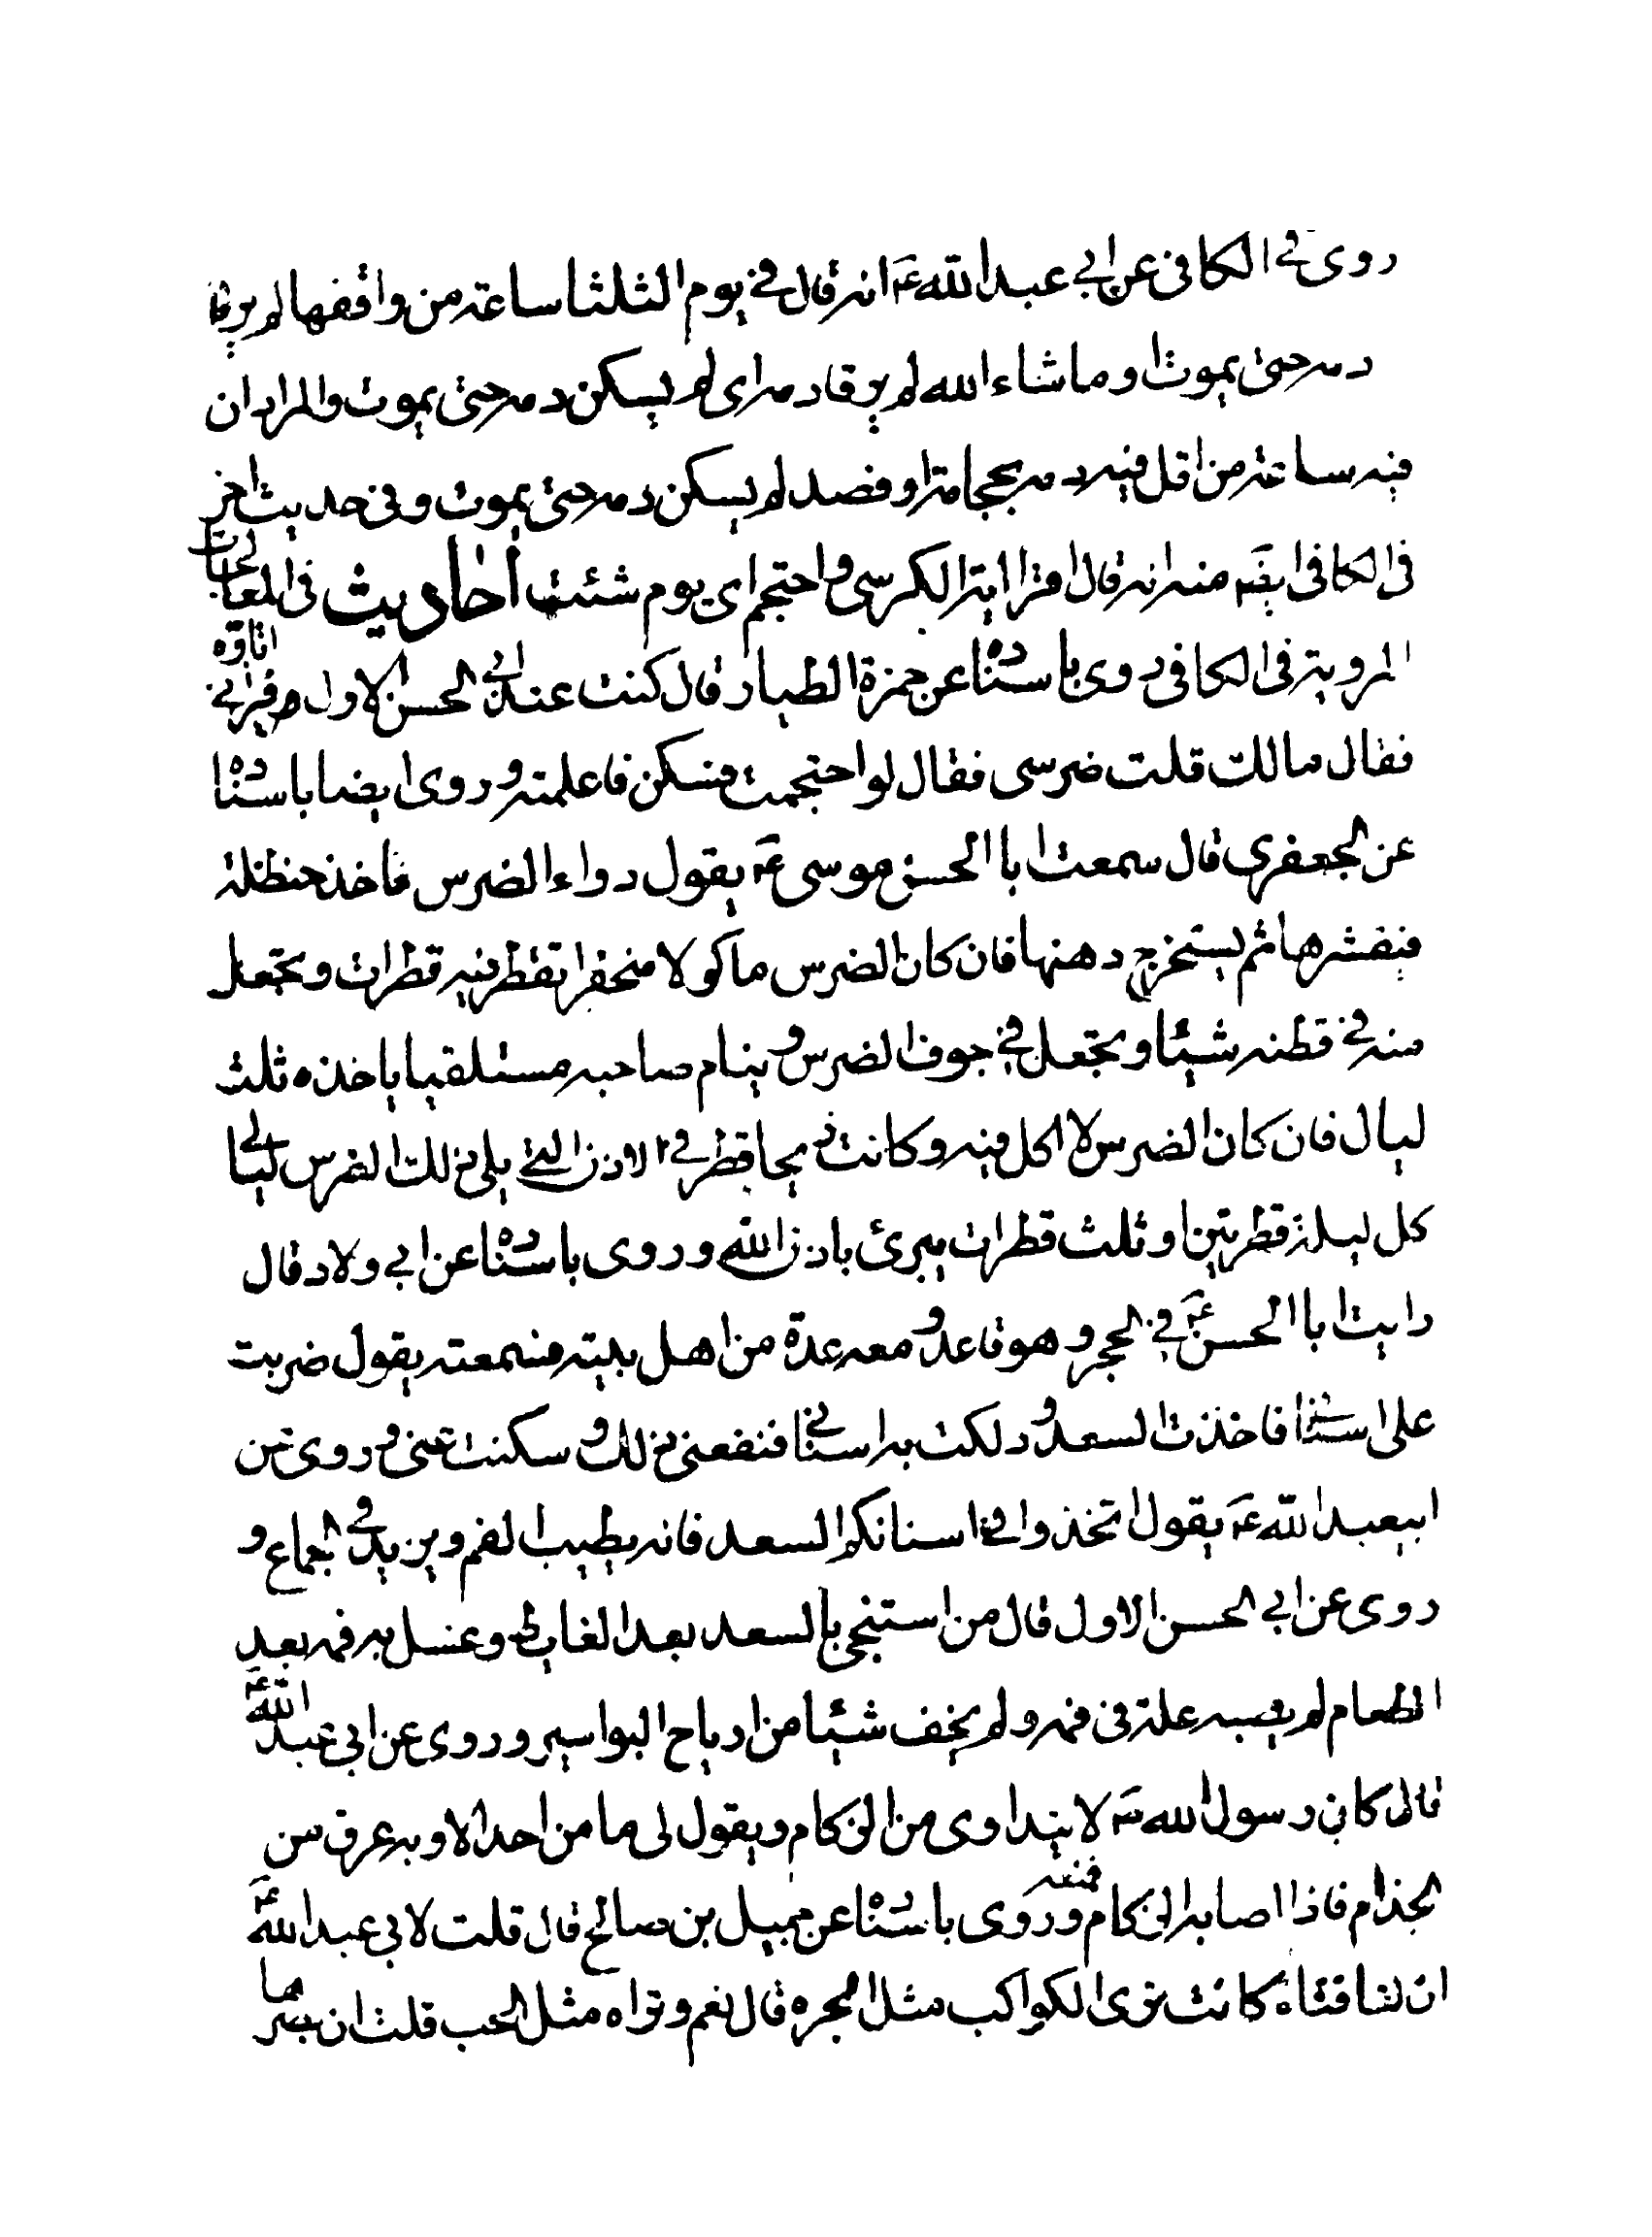 روى في الكافى عن ابي عبد الله ع انه قال في يوم الثلثا ساعة من وافقها لم يرقا
دمه حتى يموت او ما شاء الله لم يرقا دمه اى لم يسكن دمه حتى يموت والمراد ان
فيه ساعة من اقل فيه دمه بحجامة او فصد لم يسكن دمه حتى يموت وفى حديث اخر
فى الكافى ايضه منه انه قال اقرا اية الكرسى واحتجم اى يوم شئت احاديث فى المعالجات
المروية فى الكافى روى باسناده عن حمزة الطيار قال كنت عند ابي الحسن الاول فرانى اتاوه
فقال مالك قلت ضرسى فقال لو احتجمت فسكن فاعلمته وروى ايضا باسناده
عن الجعفرى قال سمعت ابا الحسن موسى ع يقول دواء الضرس فاخذ حنظلة
فيقشرها ثم يستخرج دهنها فان كان الضرس ماكولا منحفرا تقطر فيه قطرات وتجعل
منه في قطنه شيئا وتجعل في جوف الضرس وينام صاحبه مستلقيا ياخذه ثلث
ليال فان كان الضرس لا اكل فيه وكانت ريحا قطر في الاذن التي يلى ذلك الضرس ليالى
كل ليلة قطرتين او ثلث قطرات يبرئ باذن الله وروى باسناده عن ابي ولاد قال
رايت ابا الحسن ع في الحجر وهو قاعد ومعه عدة من اهل بيته فسمعته يقول ضربت
على اسنانى فاخذت السعد ودلكت به اسنانى فنفعنى ذلك وسكنت عنى وروى عن
ابيعبد الله ع يقول اتخذوا في اسنانكم السعد فانه يطيب الفم ويزيد في الجماع و
روى عن ابي الحسن الاول قال من استنجى بالسعد بعد الغايط وغسل به فمه بعد
الطعام لم يصبه علة فى فمه ولم يخف شيئا من ارياح البواسير وروى عن ابى عبد الله ع
قال كان رسول الله ص لا يتداوى من الزكام ويقول لى ما من احد الا وبه عرق من
الجذام فاذا اصابه الزكام قمعه وروى باسناده عن جميل بن صالح قال قلت لابى عبد الله ع
ان لنا فتاة كانت ترى الكواكب مثل الجره قال نعم وتراه مثل الحب قلت ان بصرها